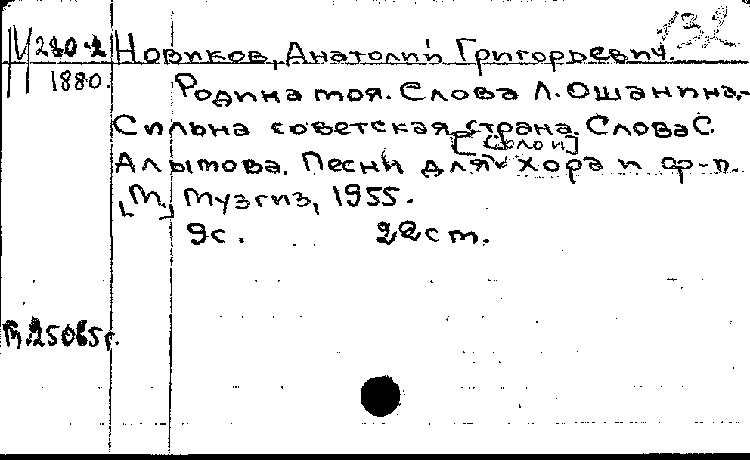 132
М 280-2 Новиков, Анатолий Григорьевич.
1880. Родина моя. Слова Л. Ошанина,-
Сильна советская страна. Слова С.
[соло и]
Алымова. Песни для хора и ф-п.
[М.] Музгиз, 1955.
9с. 22см.
25065г.